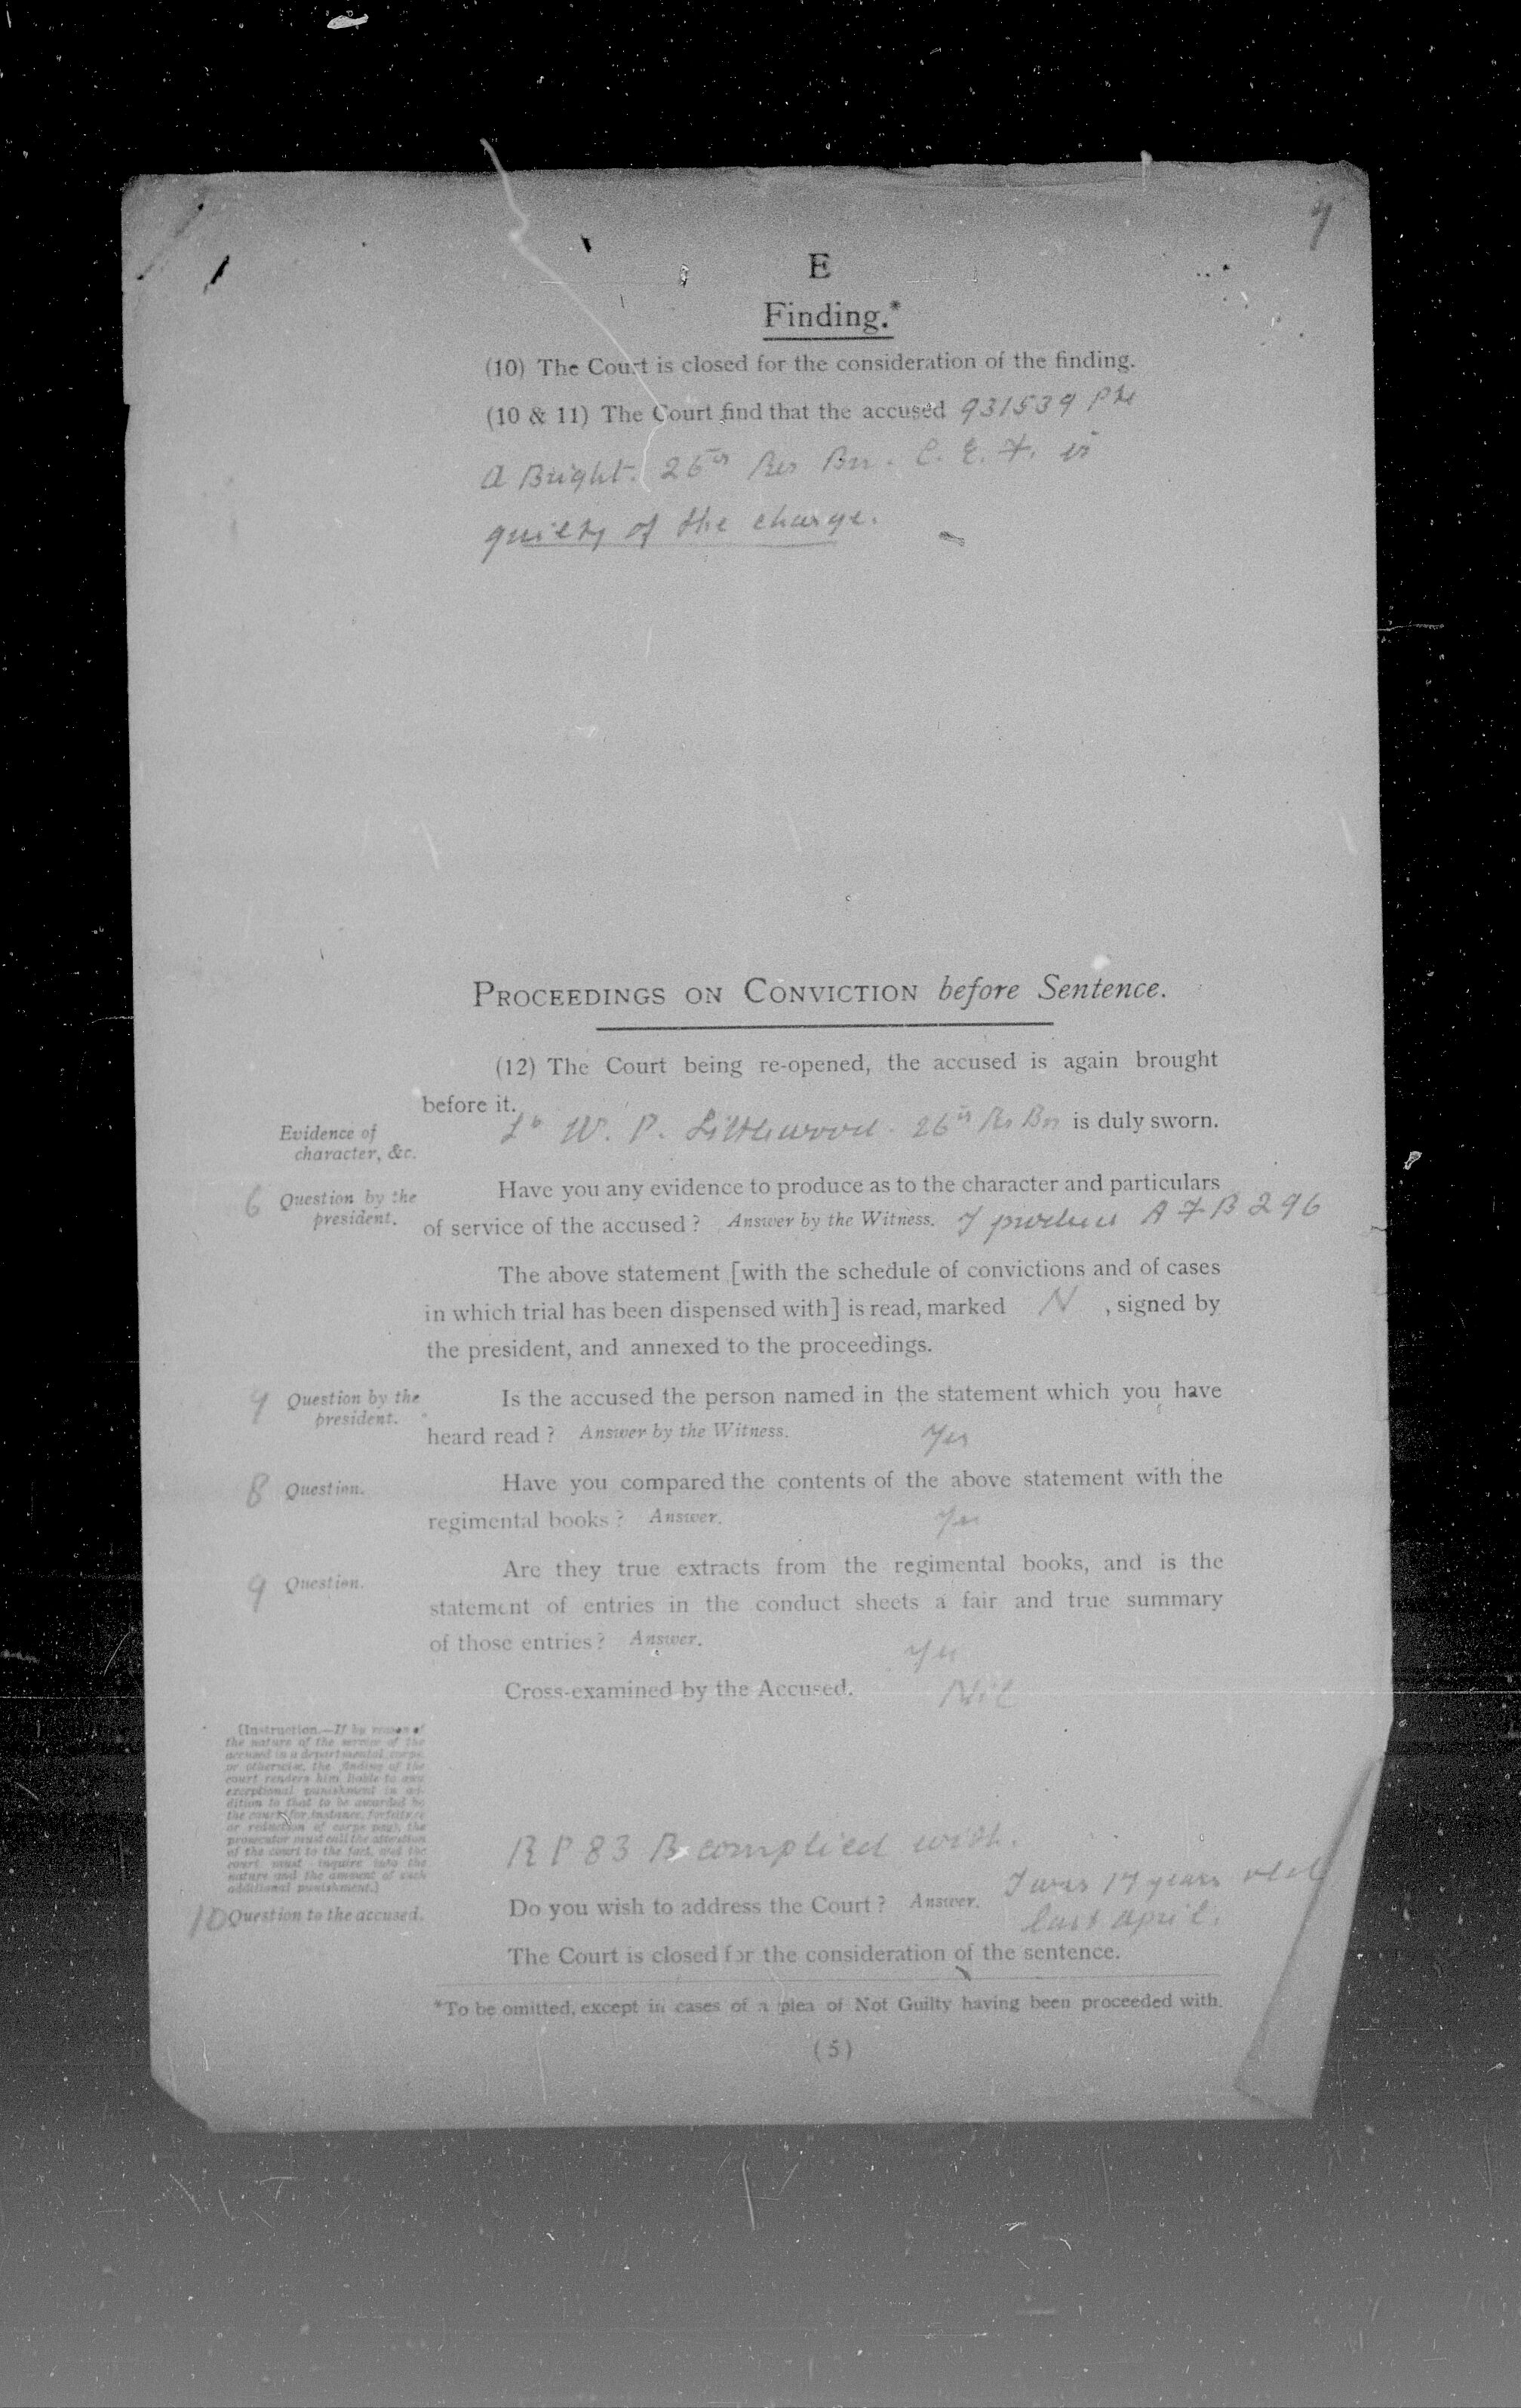 7
E
Finding.*
(10) The Court is closed for the consideration of the finding.
(10 & 11) The Court find that the accused 931539 Pte
A Bright. 26th Res Bn. C. E. F. is
guilty of the charge.
PROCEEDINGS ON CONVICTION before Sentence.
(12) The Court being re-opened, the accused is again brought
before it.
Evidence of
character, &c.
Lt W. P. Littlewood. 26th Res Bn is duly sworn.
6 Question by the
president.
Have you any evidence to produce as to the character and particulars
of service of the accused? Answer by the Witness. I produce A F B 296
The above statement [with the schedule of convictions and of cases
in which trial has been dispensed with] is read, marked N , signed by
the president, and annexed to the proceedings.
7 Question by the
president.
Is the accused the person named in the statement which you have
heard read? Answer by the Witness. Yes
8 Question.
Have you compared the contents of the above statement with the
regimental books? Answer. Yes
9 Question.
Are they true extracts from the regimental books, and is the
statement of entries in the conduct sheets a fair and true summary
of those entries? Answer. Yes
Cross-examined by the Accused. Nil
(Instruction.—If by reason of
the nature of the service of the
accused in a departmental corps,
or otherwise, the finding of the
court renders him liable to any
exceptional punishment in ad-
dition to that to be awarded by
the court, for instance, forfeiture
or reduction of corps pay), the
prosecutor must call the attention
of the court to the fact, and the
court must inquire into the
nature and the amount of such
additional punishment.)
R P 83 B complied with.
10 Question to the accused.
Do you wish to address the Court? Answer. I was 17 years old
last april.
The Court is closed for the consideration of the sentence.
*To be omitted, except in cases of a plea of Not Guilty having been proceeded with.
(5)